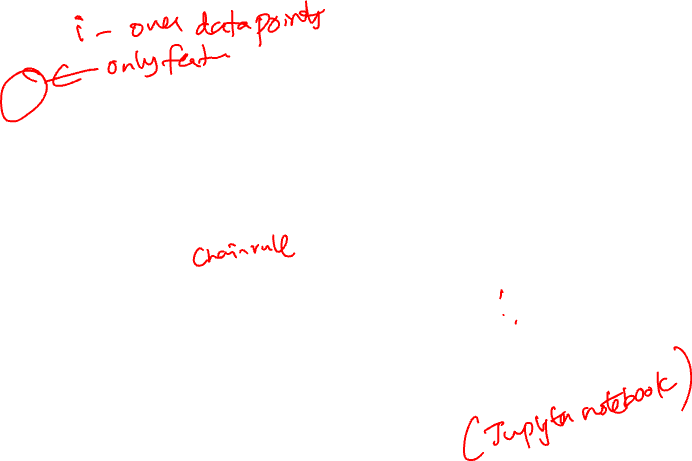 i - over data points
only feat
Chainrule
(Jupyter notebook)